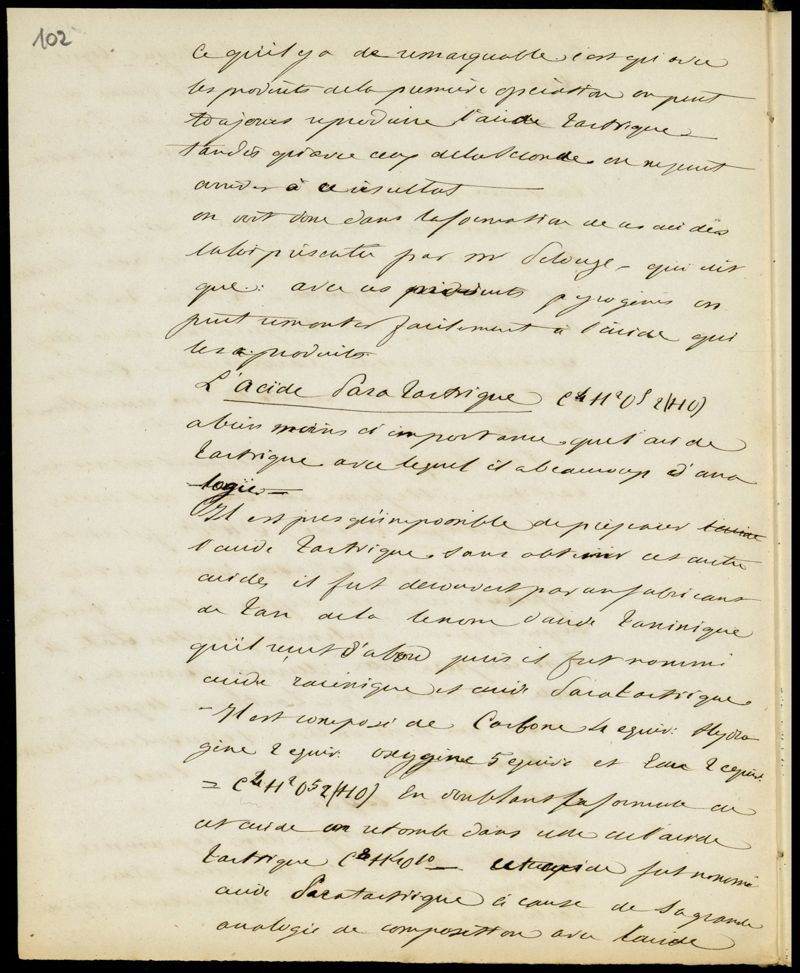 102
ce qu'il y a de remarquable c'est qu'avec
les produits de la première opération on peut
toujours reproduire l'acide tartrique
tandis qu'avec ceux de la seconde on ne peut
arriver à ce résultat
on voit donc dans la formation de ces acides
la loi présentée par mr Pelouze, qui dit
que: avec ces produits pyrogénés on
peut remonter facilement à l'acide qui
les a produits.
L'acide Paratartrique C4H2O5 2(HO)
a bien moins d'importance que l'acide
tartrique avec lequel il a beaucoup d'ana
logie
Il est presqu'impossible de préparer
l'acide tartrique sans obtenir cet autre
acide, il fut découvert par un fabricant
de Tan de là le nom d'acide Taninique
qu'il reçut d'abord puis il fut nommé
acide racémique et acide Paratartrique
- Il est composé de Carbone 4 equiv: Hydro
gène 2 equiv: oxygène 5 equiv: et Eau 2 equiv:
= C4H2O5 2(HO) En doublant la formule de
cet acide on retombe dans celle de l'acide
tartrique C8H4O10 cet acide fut nommé
acide Paratartrique à cause de sa grande
analogie de composition avec l'acide